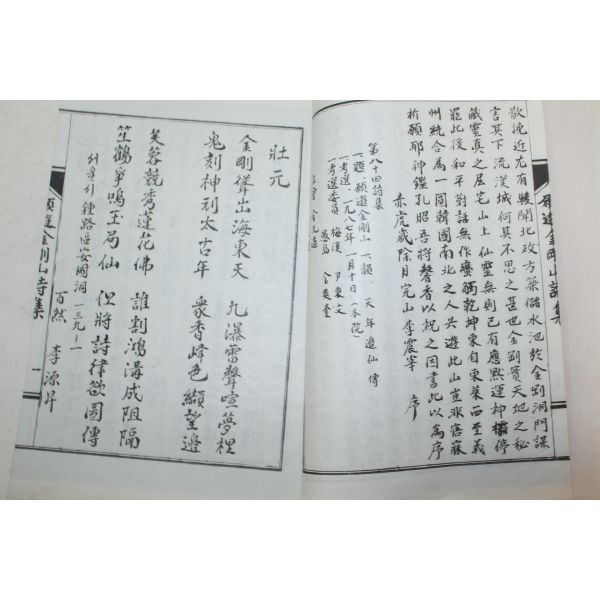 歎挽近尤有駭聞北政方築儲水池於金剛洞門謀
害其下流漢城何其不思之甚也金剛實天地之秘
藏靈真之居宅山上仙靈無則已有應黙運神權停
罷此役和平對話無作蠻觸乾坤自東萊西至義
州統合為一同韓國南北之人共遊此山豈非寤寐
祈願耶神鑑孔昭吾將馨香以祝之因書此以為序
赤虎歲除月完山李震宰 序
第八十四回詩集
一題 願遊金剛山 一韻 天年邊仙傳
一考選 一九八七年一月十日(本院)
一考選委員 梅溪 尹東文
願遊金剛山詩集
壯元
金剛聳出海東天 九瀑雷聲喧夢裡
鬼刻神刓太古年 衆香峰色纈望邊
芙蓉競秀蓮花佛 誰割鴻溝成阻隔
笙鶴爭鳴玉局仙 但將詩律欲圖傳
서울시 鍾路區安國洞 一三九─一
百然 李源昇
願遊金剛山詩集 一